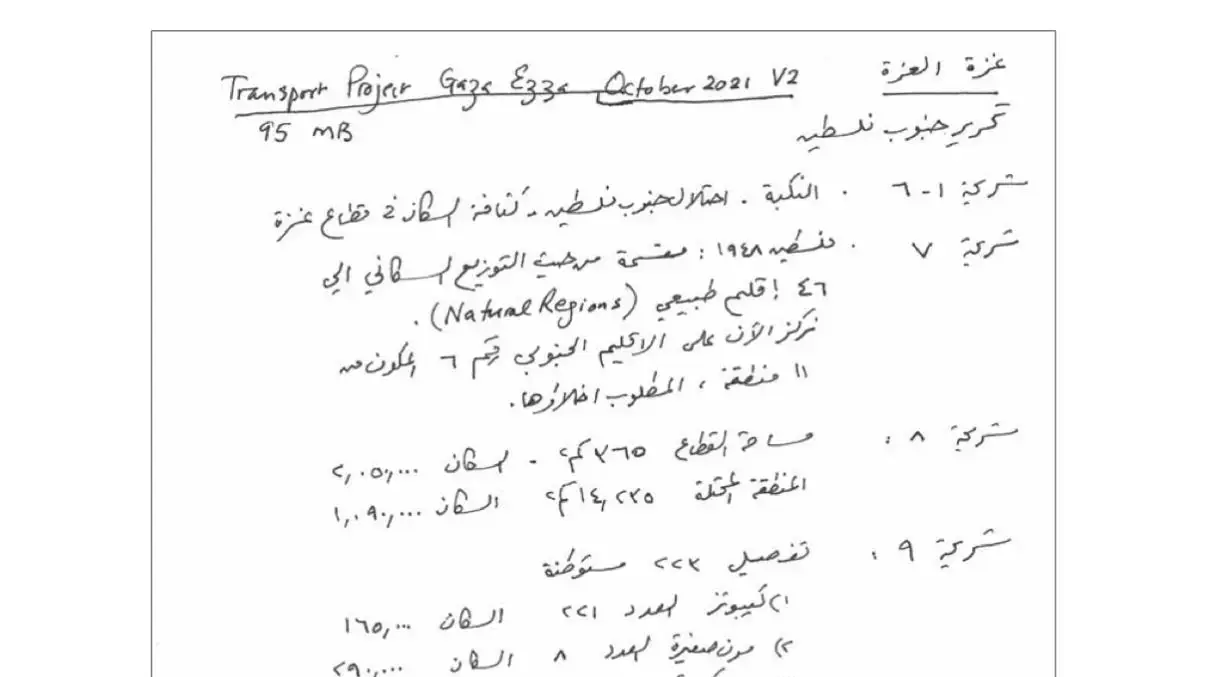 Transport Project Gaza Ezza October 2021 V2
95 MB
غزة العزة
تحرير جنوب فلسطين
شريحة ١-٦ . النكبة . احتلال جنوب فلسطين . كثافة السكان في قطاع غزة
شريحة ٧ . فلسطين ١٩٤٨ : مقسمة من حيث التوزيع السكاني الى
٤٦ إقليم طبيعي (Natural Regions) .
نركز الآن على الاقليم الجنوبي رقم ٦ المكون من
١١ منطقة ، المطلوب اخلاؤها .
شريحة ٨ : مساحة القطاع ٣٦٥ كم٢ . السكان ٢,٠٥٠,٠٠٠
المنطقة المحتلة ١٤,٢٣٥ كم٢ السكان ١,٠٩٠,٠٠٠
شريحة ٩ : تفصيل ٢٢٣ مستوطنة
١) كيبوتز العدد ٢٢١ السكان ١٦٥,٠٠٠
٢) مدن صغيرة العدد ٨ السكان ٢٩٠,٠٠٠